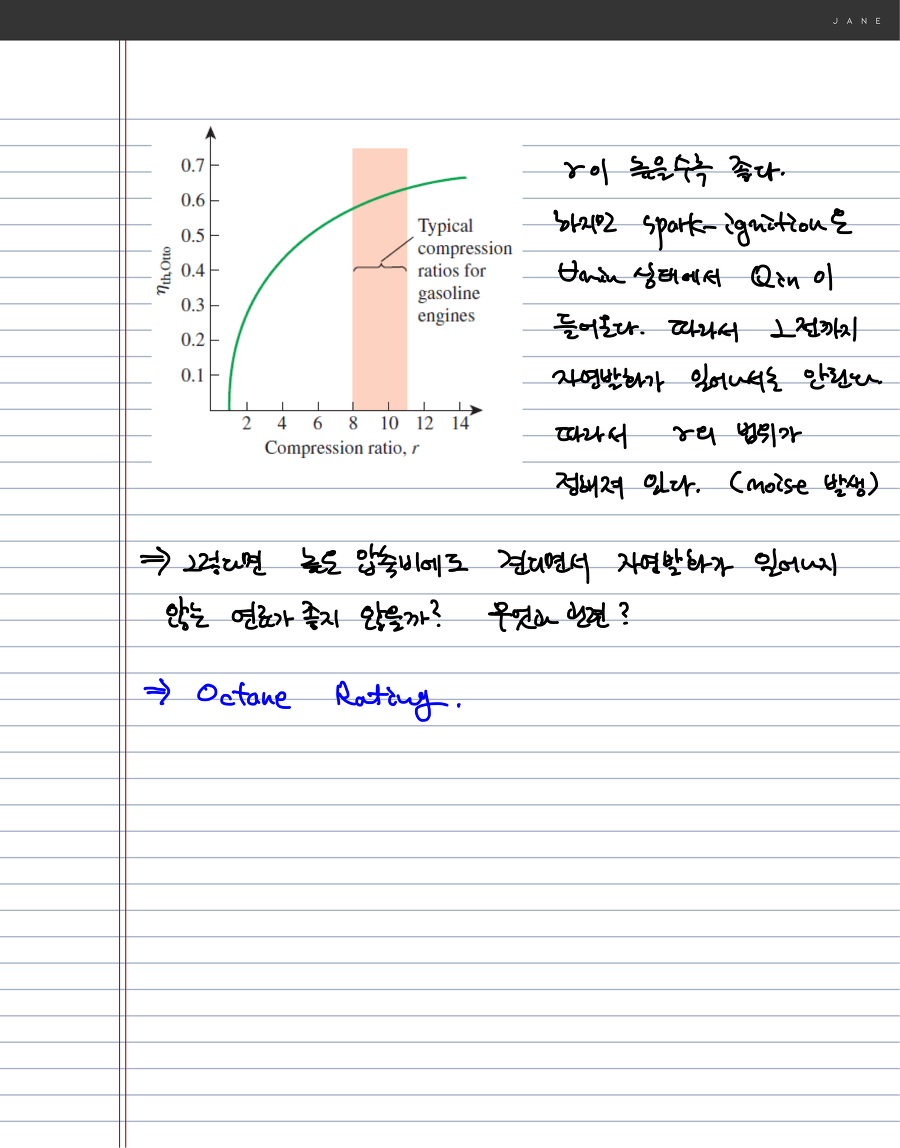 JANE
0.7
0.6
0.5
0.4
0.3
0.2
0.1
ηth,Otto
2 4 6 8 10 12 14
Compression ratio, r
Typical
compression
ratios for
gasoline
engines
r이 높을수록 좋다.
하지만 spark-ignition은
Vmin 상태에서 Qin이
들어온다. 따라서 그전까지
자연발화가 일어나서는 안된다.
따라서 r의 범위가
정해져 있다. (noise 발생)
⇒ 그렇다면 높은 압축비에도 견디면서 자연발화가 일어나지
않는 연료가 좋지 않을까? 무엇과 연관?
⇒ Octane Rating.